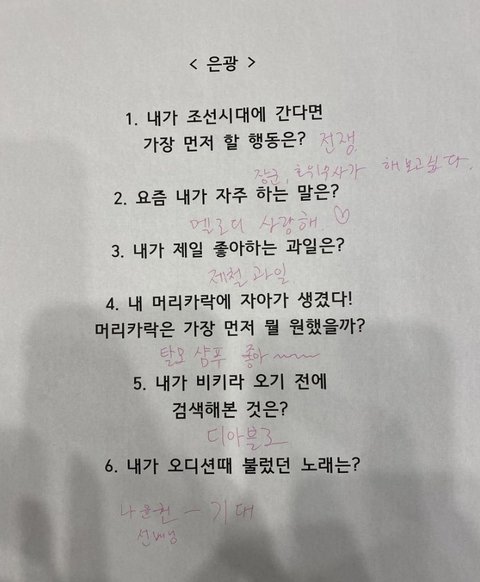 < 은광 >
1. 내가 조선시대에 간다면
가장 먼저 할 행동은? 전쟁
장군, 호위무사가 해보고싶다.
2. 요즘 내가 자주 하는 말은?
멜로디 사랑해 ♡
3. 내가 제일 좋아하는 과일은?
제철 과일
4. 내 머리카락에 자아가 생겼다!
머리카락은 가장 먼저 뭘 원했을까?
탈모 샴푸 좋아~~~
5. 내가 비키라 오기 전에
검색해본 것은?
디아블로
6. 내가 오디션때 불렀던 노래는?
나윤권 — 기대
선배님